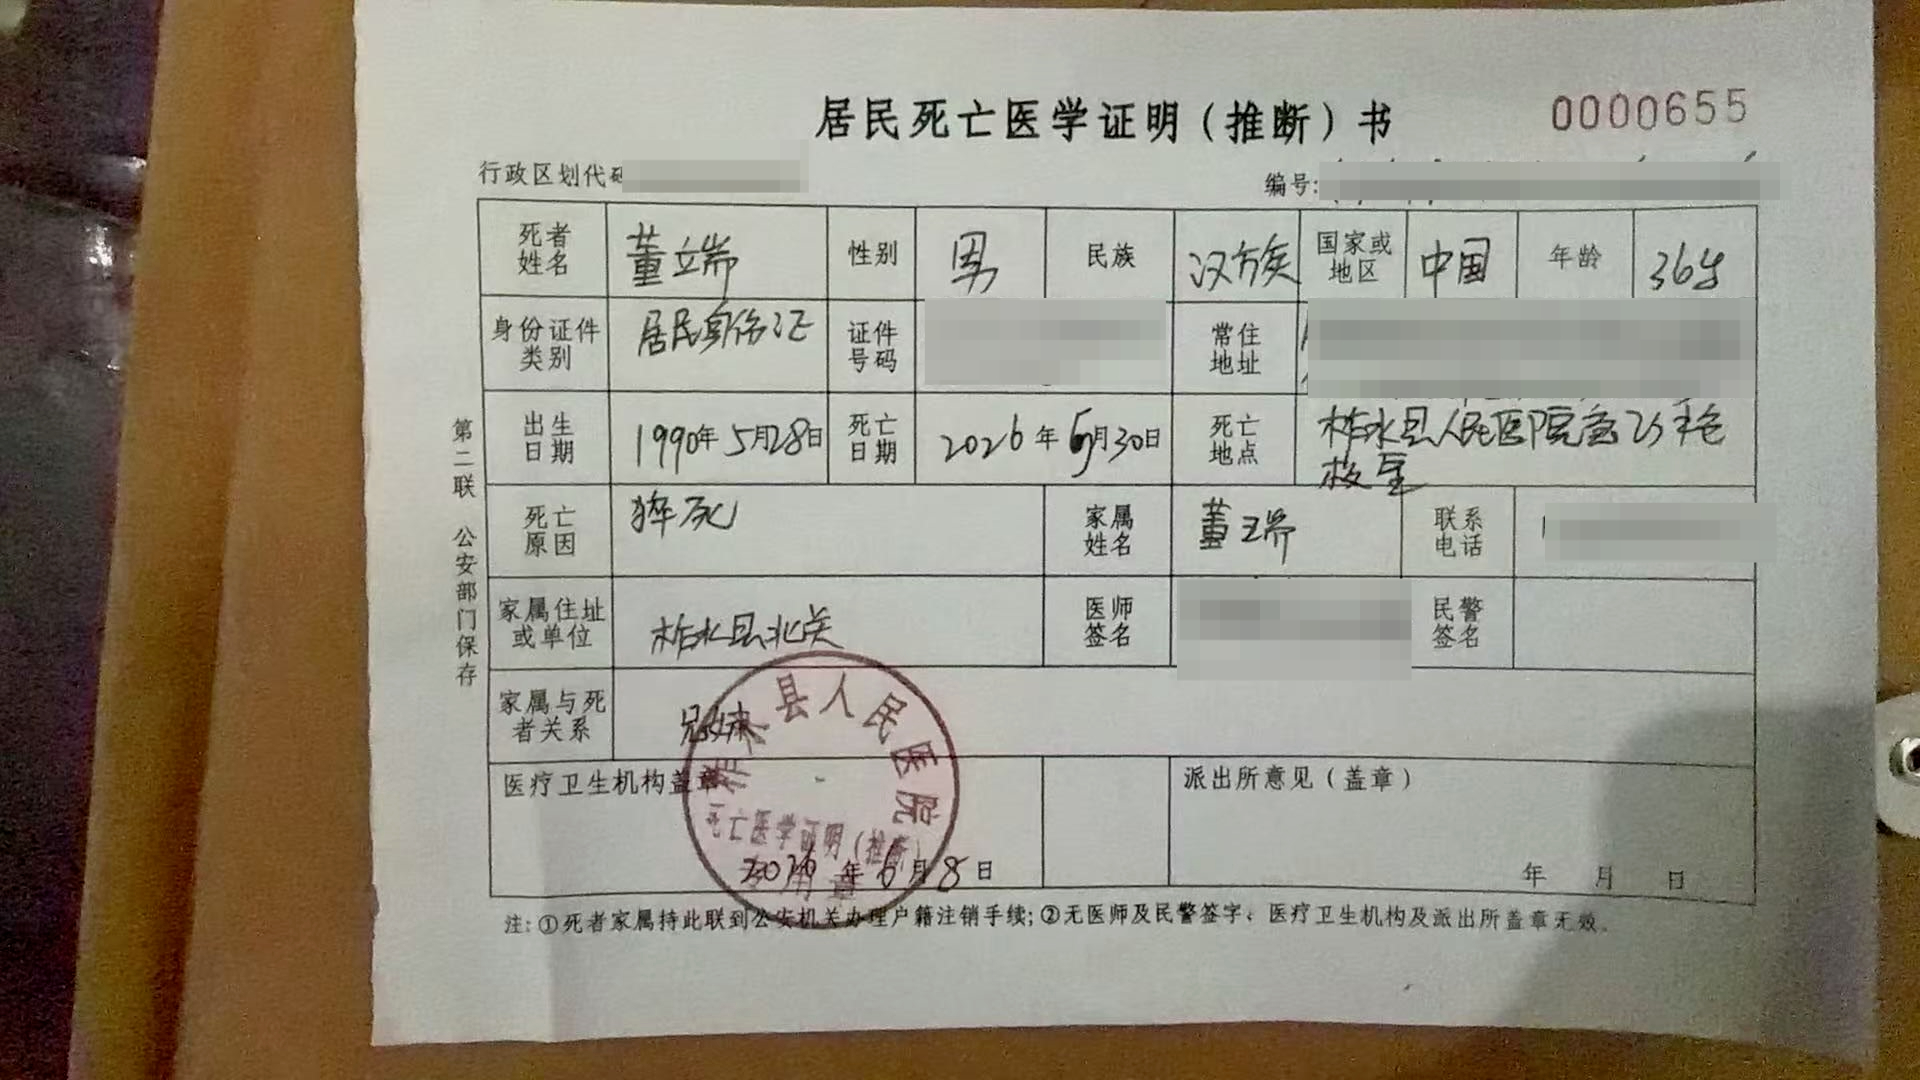 居民死亡医学证明（推断）书
0000655
行政区划代码
编号:
死者姓名 董端 性别 男 民族 汉族 国家或地区 中国 年龄 36岁
身份证件类别 居民身份证 证件号码 常住地址
出生日期 1990年5月28日 死亡日期 2026年6月30日 死亡地点 柞水县人民医院
死亡原因 猝死 家属姓名 董瑞 联系电话
家属住址或单位 柞水县北关 医师签名 民警签名
家属与死者关系 兄妹
医疗卫生机构盖章 派出所意见（盖章）
柞水县人民医院
死亡医学证明（推断）
专用章
2026年6月8日 年 月 日
注:①死者家属持此联到公安机关办理户籍注销手续;②无医师及民警签字、医疗卫生机构及派出所盖章无效。
第二联 公安部门保存